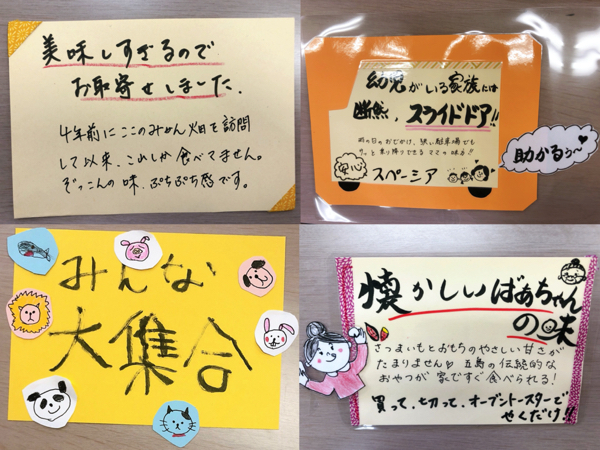 美味しすぎるので
お取寄せしました.
4年前にここのみかん畑を訪問
して以来、これしか食べてません。
ぞっこんの味、ぷちぷち感です。
幼児がいる家族には
断然、スライドドア!!
雨の日のおでかけ、狭い駐車場でも
サッと乗り降りできるママの味方♪
安心
スペーシア
助かるぅ~
みんな
大集合
懐かしいばあちゃん
の味
さつまいもとおもちのやさしい甘さが
たまりません♡ 五島の伝統的な
おやつが家ですぐ食べられる!
買って、切って、オーブントースターで
やくだけ!!